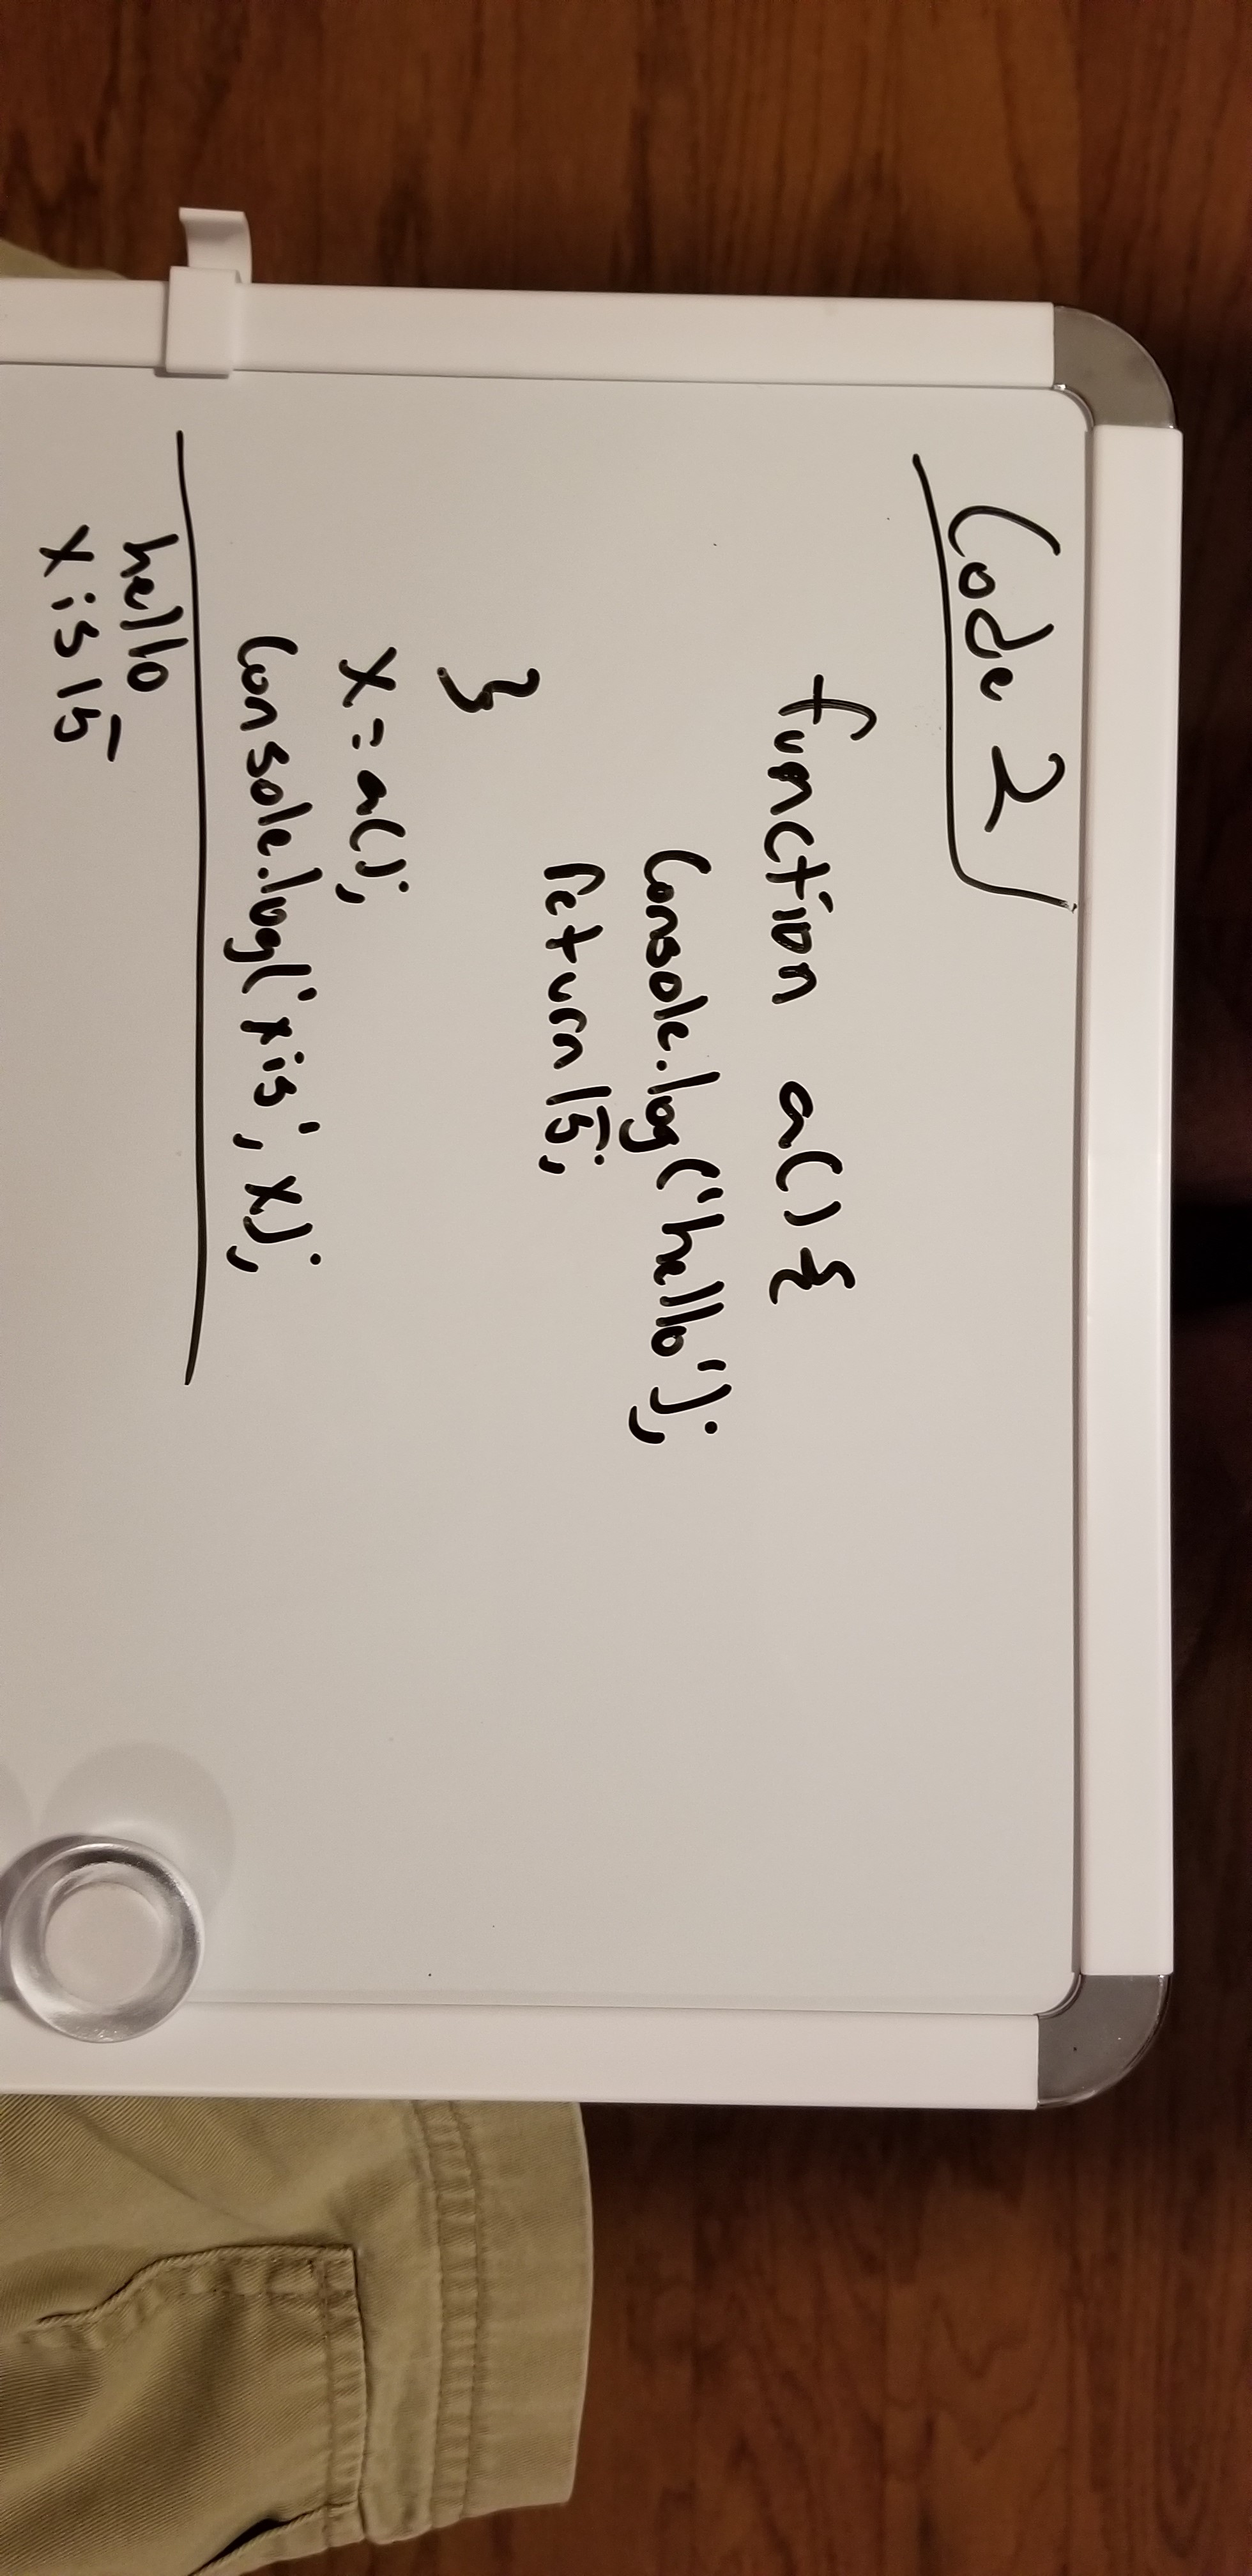 Code 2
function a() {
console.log('hello');
return 15;
}
x = a();
console.log('x is', x);
hello
x is 15